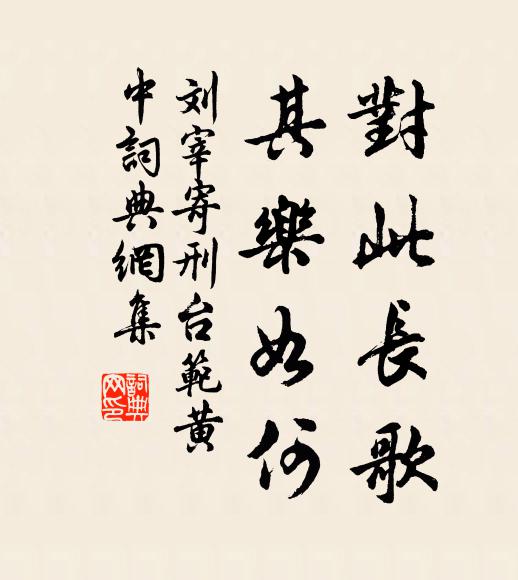 對此長歌
其樂如何
刘宰寄刑台範黄
中詞典網集
詞典
网印